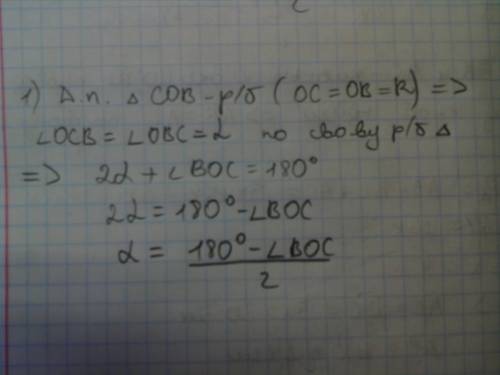 1) Д.п. △ COB - р/б ( OC = OB = R) =>
∠OCB = ∠OBC = α по св-ву р/б △
=> 2α + ∠BOC = 180°
2α = 180° - ∠BOC
α = 180° - ∠BOC
2